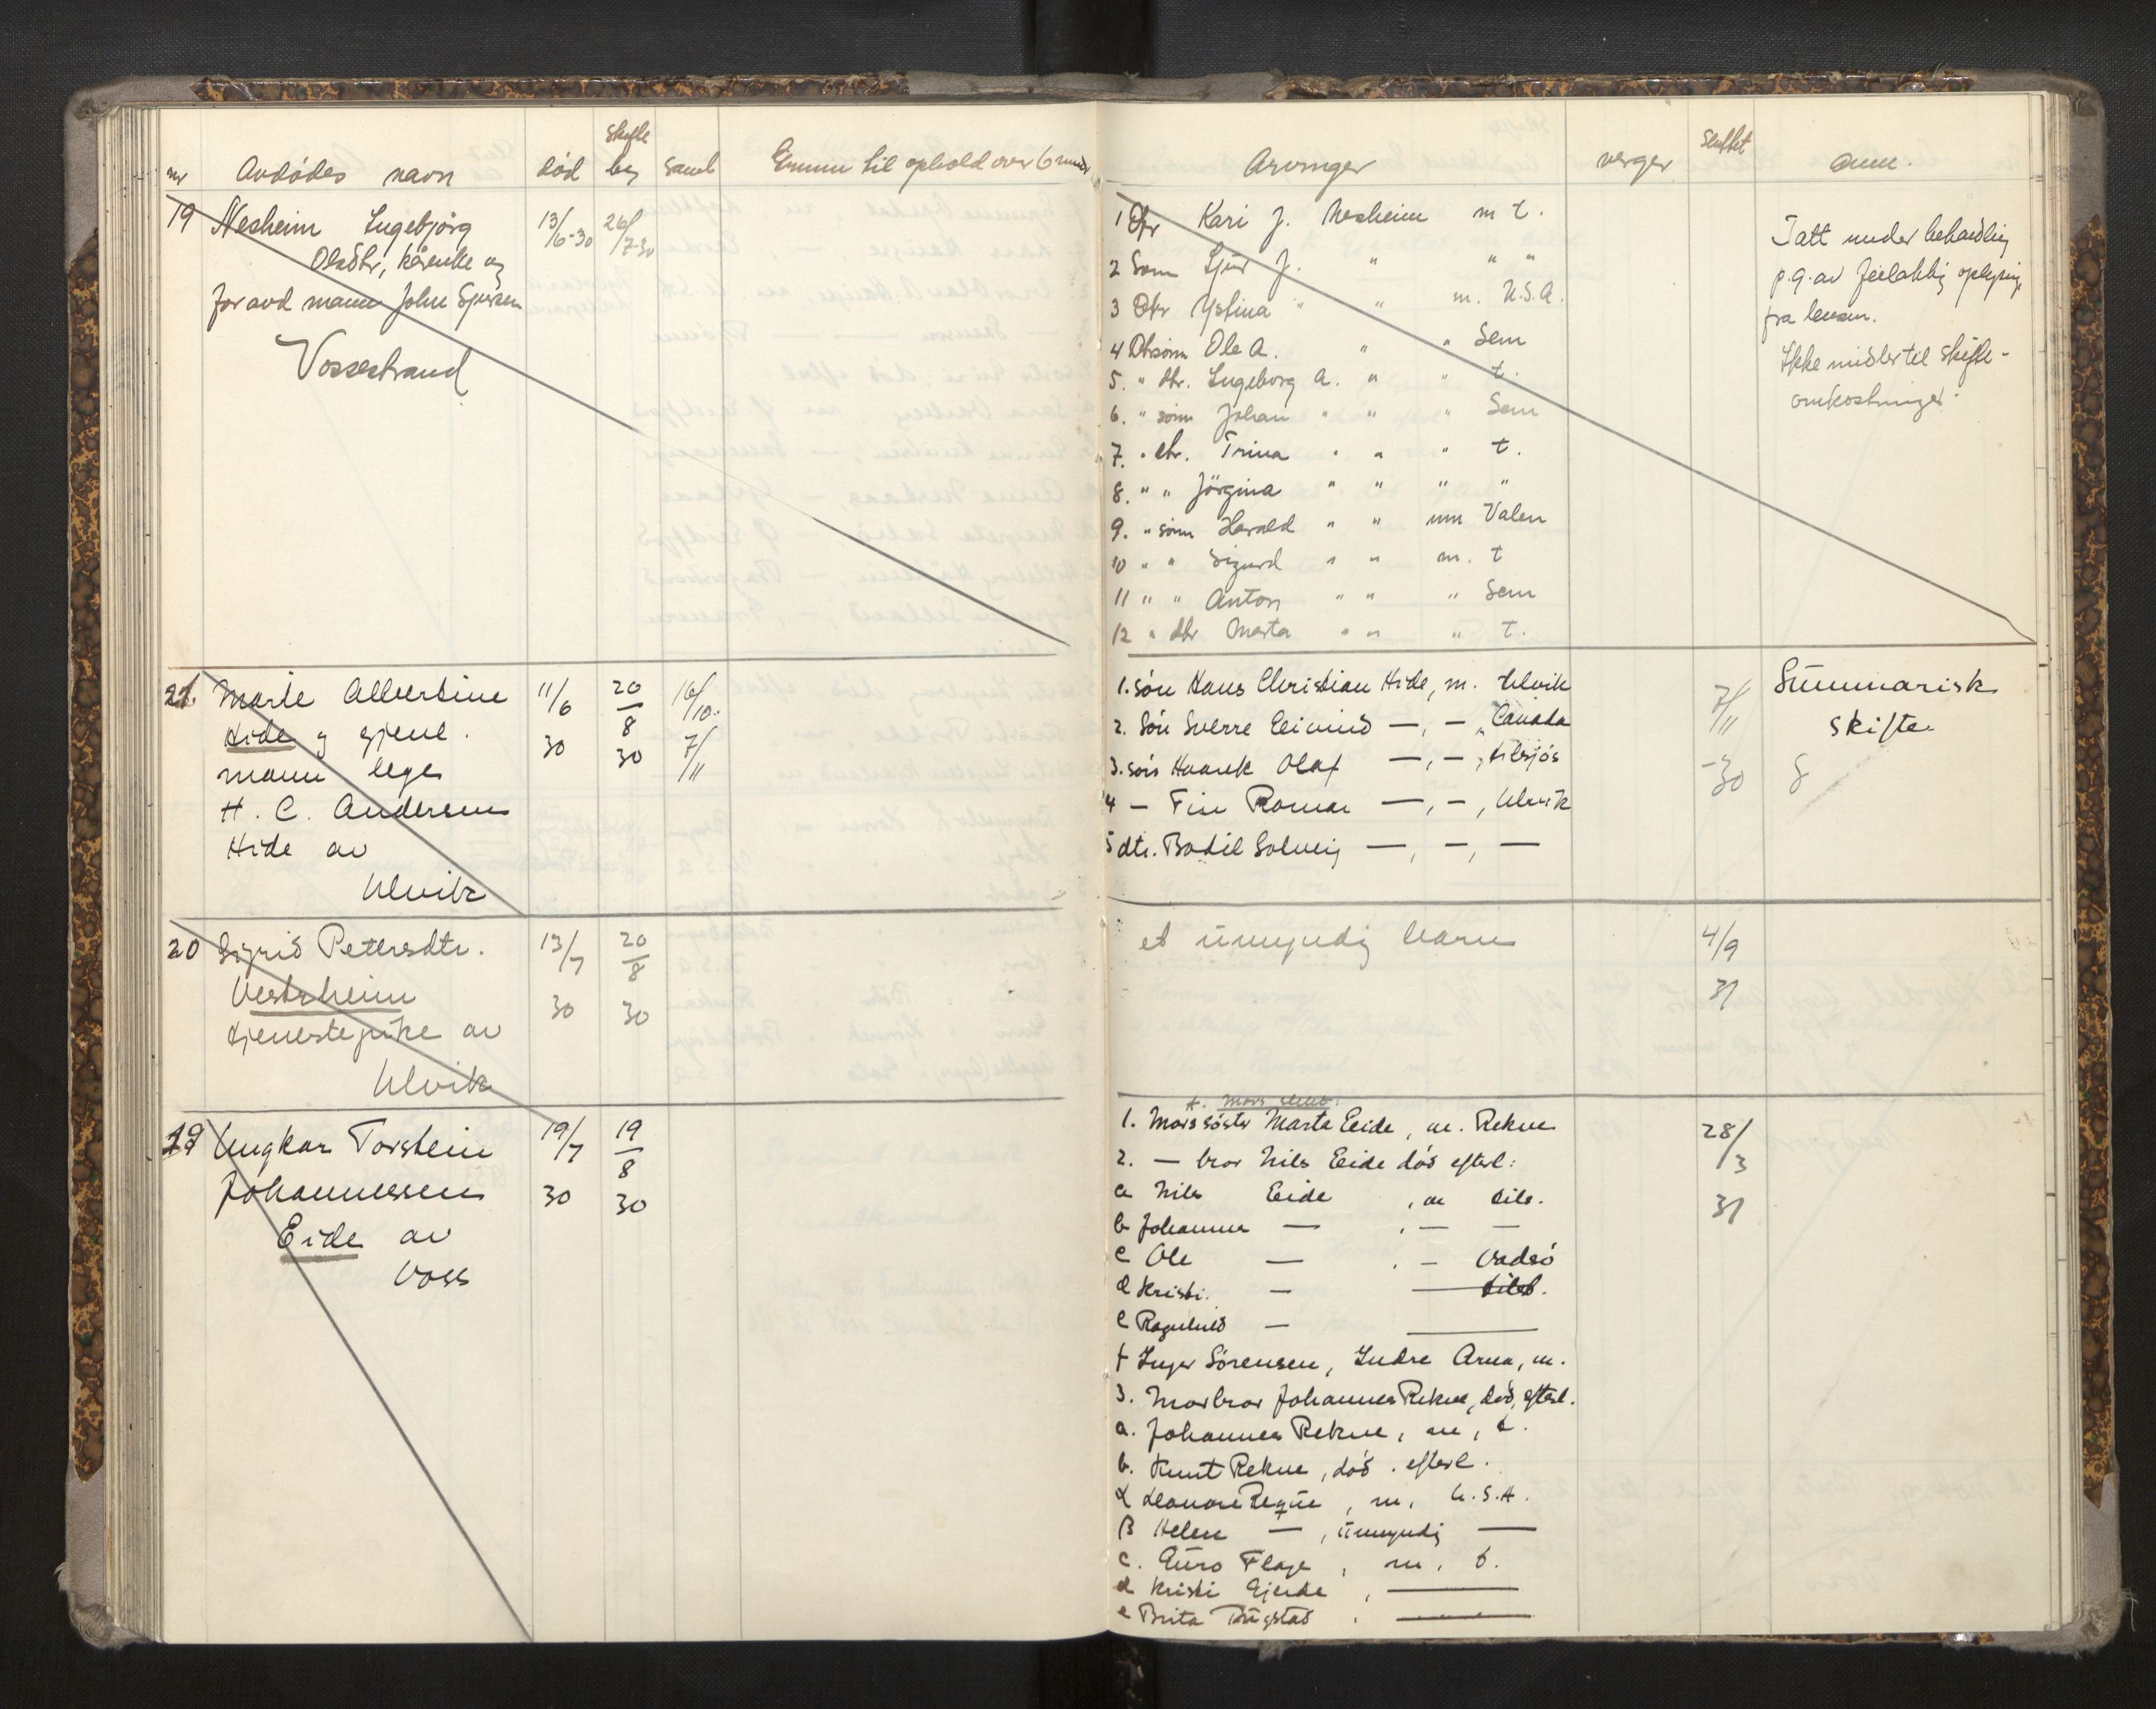 nr Avdödes navn död skifte beg saml Emnu til ophold over 6 mnd
19 Nesheim Ingebjörg 13/6-30 26/7-30
Olsdtr, kårenke og
for avd mann John Sjursen
Vossestrand
21. Marie Albertine 11/6 30 20/8 30 16/10. 7/11
Hide g gjenl.
mann lege
H. C. Andersen
Hide av
Ulvik
20 Sigrid Pettersdtr. 13/7 30 20/8 30
Vestrheim
tjenestepike av
Ulvik
19 Ungkar Torstein 19/7 30 19/8 30
Johannessen
Eide av
Voss
Arvinger verger sluttet anm.
1 Dtr Kari J. Nesheim m t.
2 Sønn Sjur J. " " "
3 Dtr Ystina " " m. U.S.A.
4 Dtrsønn Ole A. " " Sem
5. " dtr. Ingeborg A. " " t.
6. " sönn Johan " " " Sem
7. " dtr. Trina " " " t.
8. " " Jörgina " " " "
9. " sönn Harald " " um Valen
10 " " Sigurd " " m. t
11 " " Anton " " " Sem
12 " dtr Marta " " " t.
Tatt under behandling
p.g.av feilaktig oplysning
fra lensm.
Ikke midler til skifte-
omkostninger.
1. sön Hans Christian Hide, m. Ulvik
2. Sön Sverre Eivind —, — „ Canada
3. sön Haarek Olaf —, —,
4 — Finn Romar —, —, Ulvik
5 dtr. Bodil Solveig —, —, —
7/11 -30
Summarisk
skifte
8
et umyndig barn 4/9 31
A. Mors slekt:
1. Mors søster Marta Eide, m. Rekve 28/3 31
2. — bror Nils Eide död efterl:
a Nils Eide , m tils.
b Johanna — , — —
c Ole — . — Vadsö
d Kristi. — — tilst.
e Ragnhild — —
f Inger Sörensen, Indre Arna, m.
3. Morbror Johannes Rekve, död, efterl.
a. Johannes Rekve, m, t.
b. Knut Rekve, död. efterl.
α Leonore Reque, m, U.S.A.
β Helen — , umyndig —
c. Guro Flage, m, t.
d Kristi Gjerde, —
e Brita Dugstad, —